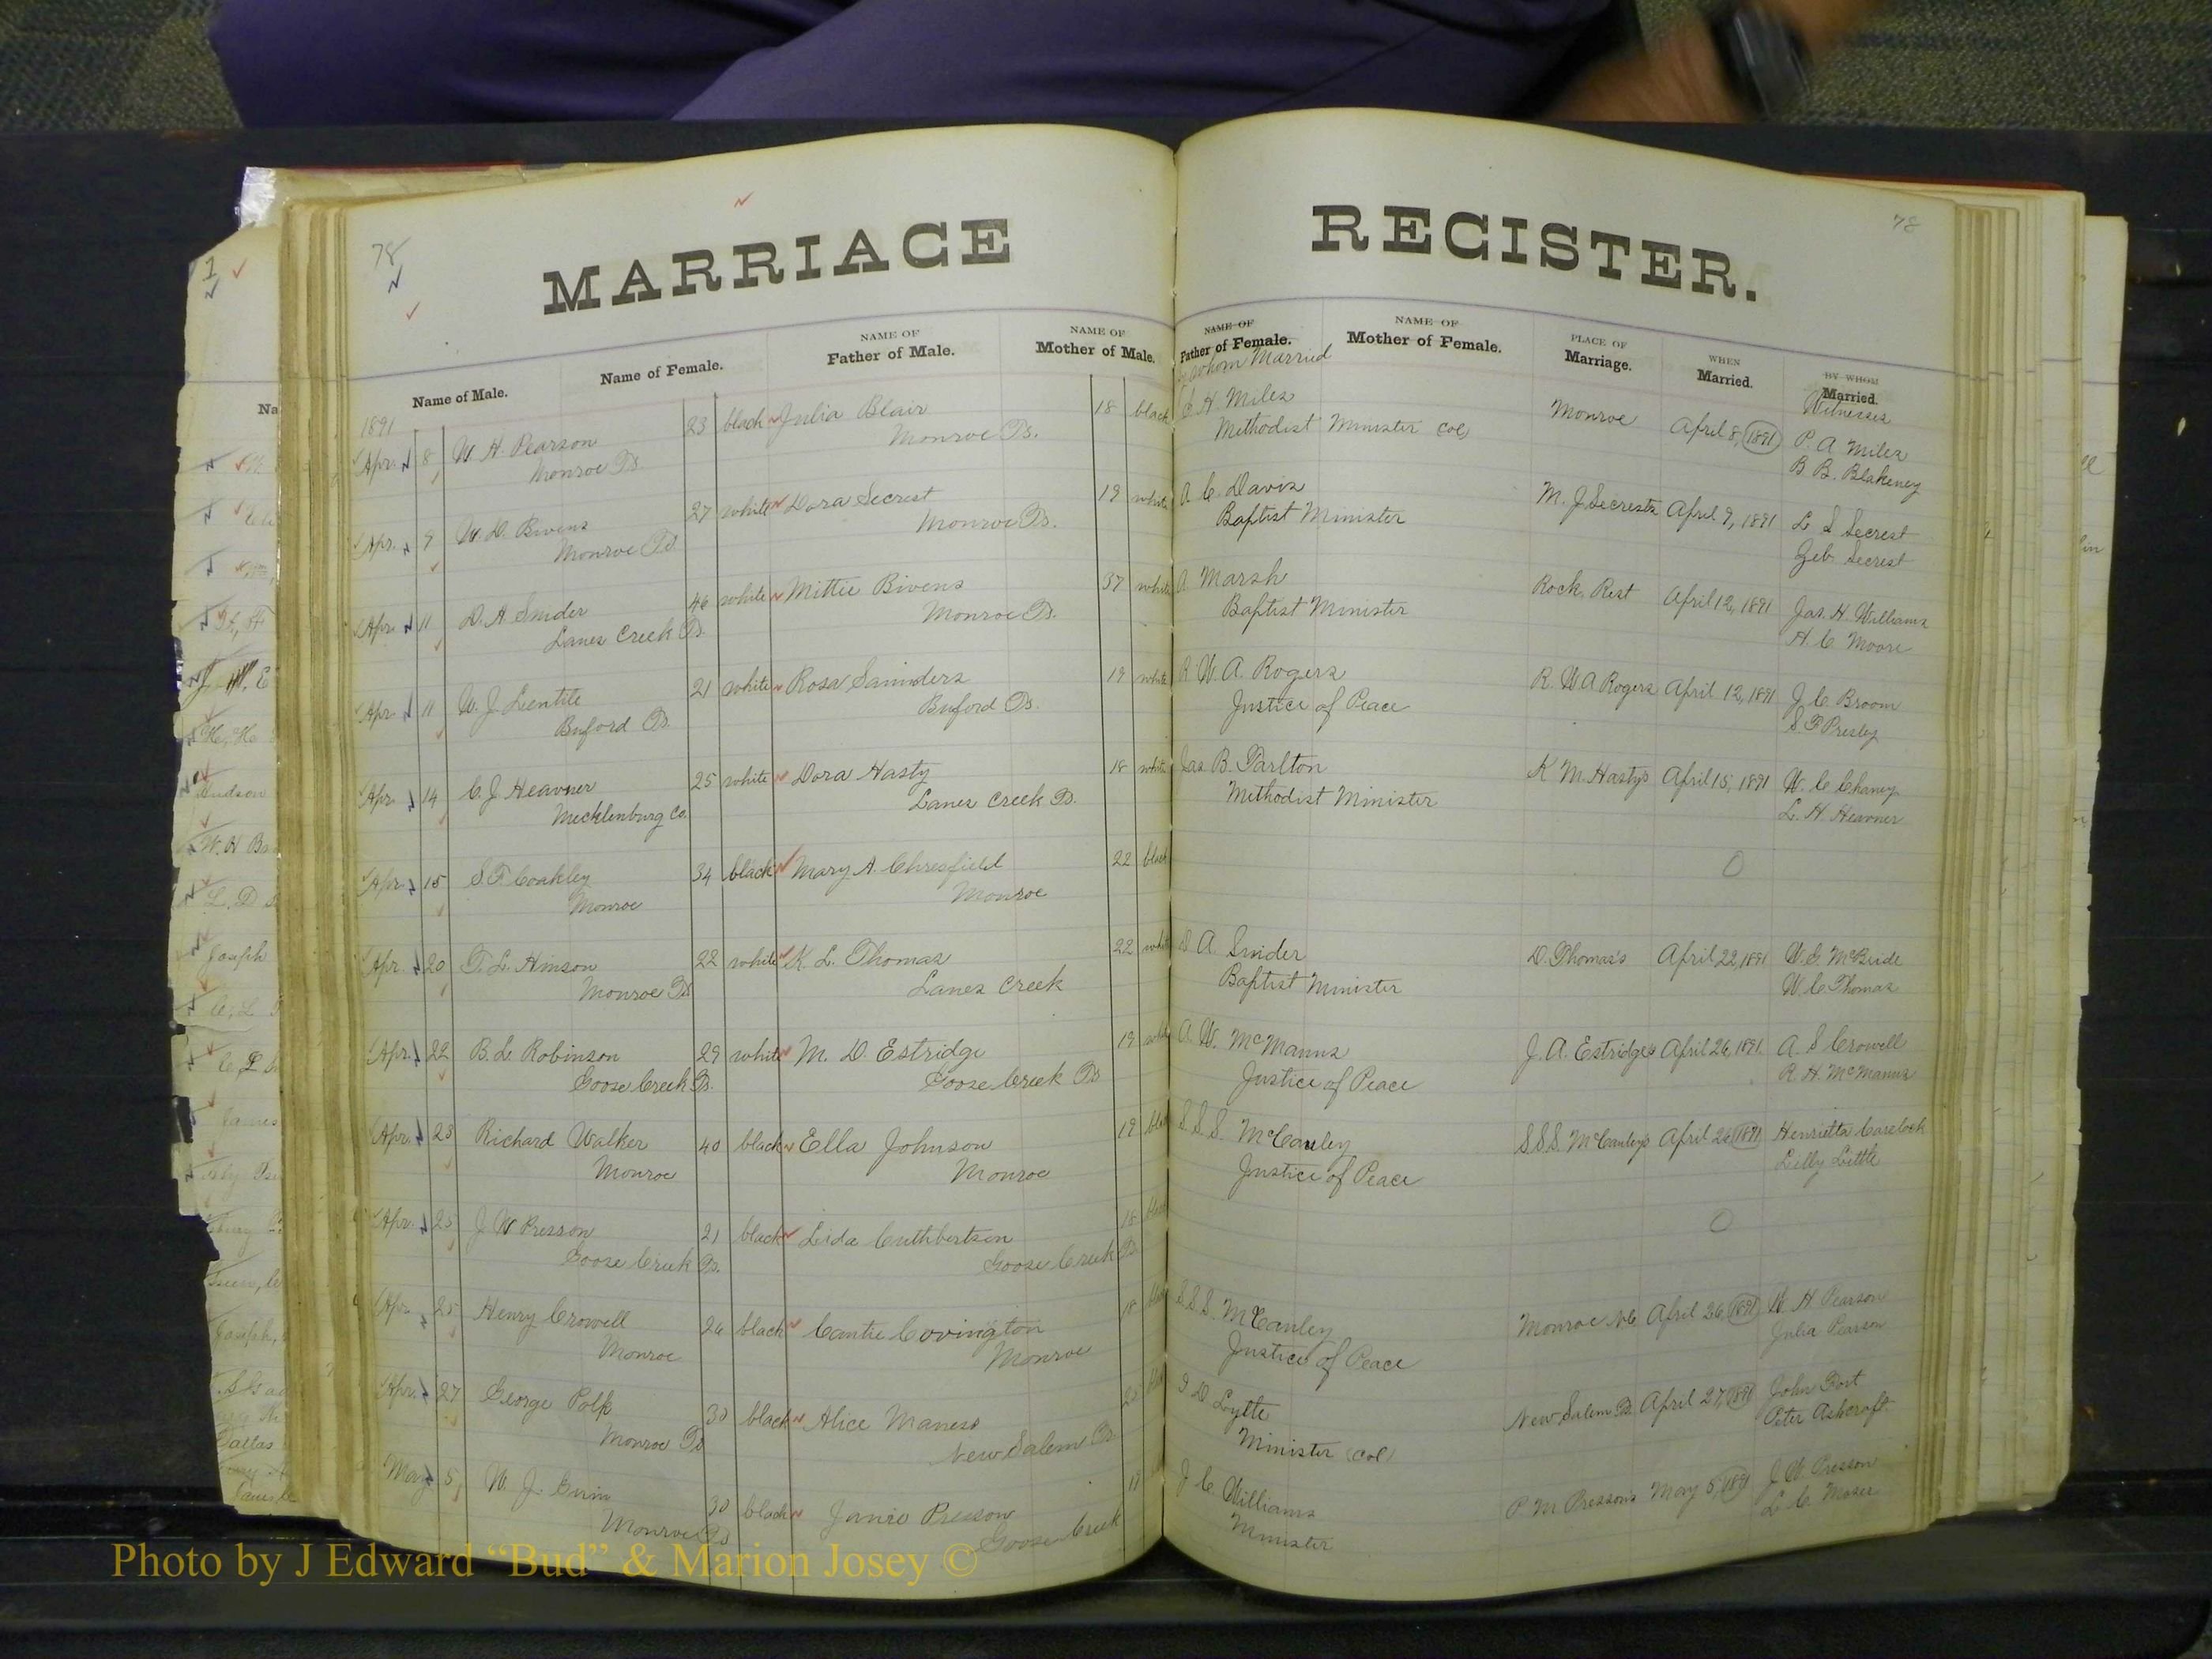 78
MARRIAGE REGISTER.
78
Name of Male.
Name of Female.
NAME OF
Father of Male.
NAME OF
Mother of Male.
NAME OF
Father of Female.
By whom Married
NAME OF
Mother of Female.
PLACE OF
Marriage.
WHEN
Married.
BY WHOM
Married.
Witnesses
1891
Apr. 8 W. H. Pearson 23 black Julia Blair 18 black
Monroe Ts. Monroe Ts.
H. Miles Monroe April 8, 1891 P. A. Miles
Methodist Minister Col B. B. Blakeney
Apr. 9 W. D. Bivens 27 white Dora Secrest 19 white
Monroe Ts Monroe Ts.
A. C. Davis M. J. Secrests April 9, 1891 L. S. Secrest
Baptist Minister Zeb. Secrest
Apr. 11 D. A. Snider 46 white Mittie Bivens 37 white
Lanes Creek Ts. Monroe Ts.
A. Marsh Rock Rest April 12, 1891 Jas. H. Williams
Baptist Minister H. C. Moore
Apr. 11 W. J. Lentile 21 white Rosa Saunders 19 white
Buford Ts. Buford Ts.
R. W. A. Rogers R. W. A Rogers April 12, 1891 J. C. Broom
Justice of Peace S. P. Presley
Apr. 14 C. J. Heavner 25 white Dora Hasty 18 white
Mecklenburg Co. Lanes Creek Ts.
Jas. B. Tarlton K. M. Hasty's April 15, 1891 W. C. Chaney
Methodist Minister L. H. Heavner
Apr. 15 S. F. Coakley 34 black Mary A. Chresfield 22 black
Monroe Monroe
0
Apr. 20 T. L. Hinson 22 white K. L. Thomas 22 white
Monroe Ts Lanes Creek
D. A. Snider D. Thomas's April 22, 1891 W. G. McBride
Baptist Minister W. C. Thomas
Apr. 22 B. L. Robinson 29 white M. D. Estridge 19 white
Goose Creek Ts. Goose Creek Ts
A. W. McManus J. A. Estridges April 26, 1891 A. S. Crowell
Justice of Peace R. H. McManus
Apr. 23 Richard Walker 40 black Ella Johnson 19 black
Monroe Monroe
S. S. S. McCauley S.S.S. McCauleys April 26 1891 Henrietta
Justice of Peace Lilly Little
Apr. 25 J. W. Presson 21 black Lida Cuthbertson 18 black
Goose Creek Ts. Goose Creek Ts.
0
Apr. 25 Henry Crowell 26 black Cantie Covington 18 black
Monroe Monroe
S. S. S. McCauley Monroe NC April 26, 1891 W. H. Pearson
Justice of Peace Julia Pearson
Apr. 27 George Polk 30 black Alice Maness
Monroe Ts New Salem Ts.
Lytle New Salem Ts. April 27, 1891 John
Minister (Col) Peter Ashcraft
May 5 W. J. 30 black Janie Presson 19
Monroe Ts Goose Creek
J. C. Williams P. M. Pressons May 5, 1891 J. W. Presson
Minister L. C. Moser
Photo by J Edward “Bud” & Marion Josey ©